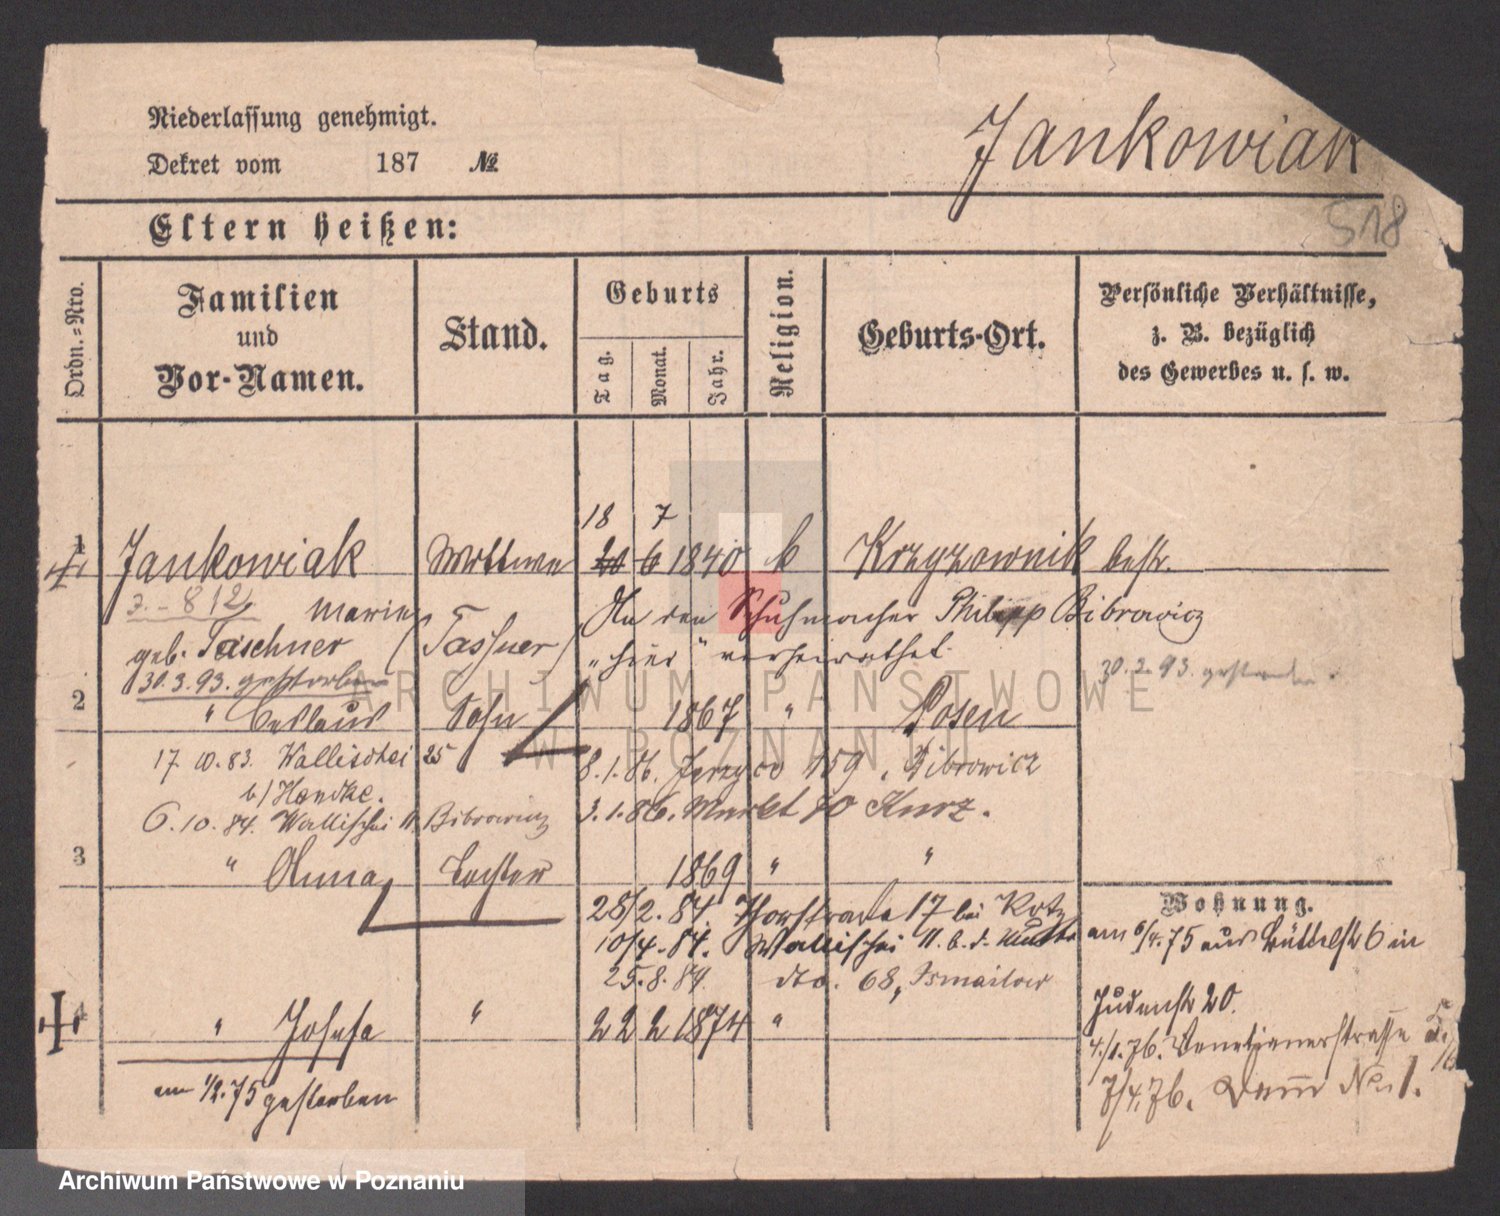 Niederlassung genehmigt.
Dekret vom 187 №
Jankowiak
518
Eltern heißen:
Ordn.-Nro.
Familien und Vor-Namen.
Stand.
Geburts
Tag. Monat. Jahr.
Religion.
Geburts-Ort.
Persönliche Verhältnisse, z. B. bezüglich des Gewerbes u. s. w.
18 7
1 Jankowiak Wittwe 20 6 1840 k Krzyzownik bestr.
Marie
geb. Taschner (Tassner)
An den Schuhmacher Philipp Bibrowicz
„hier" verheirathet.
30.3.93. gestorben
30.3.93. gestorben.
2 " Ceslaus Sohn 1867 " Posen
17.10.83. Wallischei 25
b/ Handke.
6.10.84. Wallischei 11 Bibrowicz
8.1.86. 159, Bibrowicz
3.1.86. Markt 70 Kurz.
3 " Anna Tochter 1869 " "
28/2.84. 17 bei Kotz
10/4.84. Wallischei 11. b. d. Mutter
25.8.84. dto. 68, Ismailow
4 " Josefa " 22 2 1874 "
am 1/2.75 gestorben
Wohnung.
am 6/4.75 aus Büttelstr 6 in
Judenstr 20.
4./1.76. Venetianerstrasse
7/4.76. Damm No 1.
ARCHIWUM PAŃSTWOWE
W POZNANIU
Archiwum Państwowe w Poznaniu